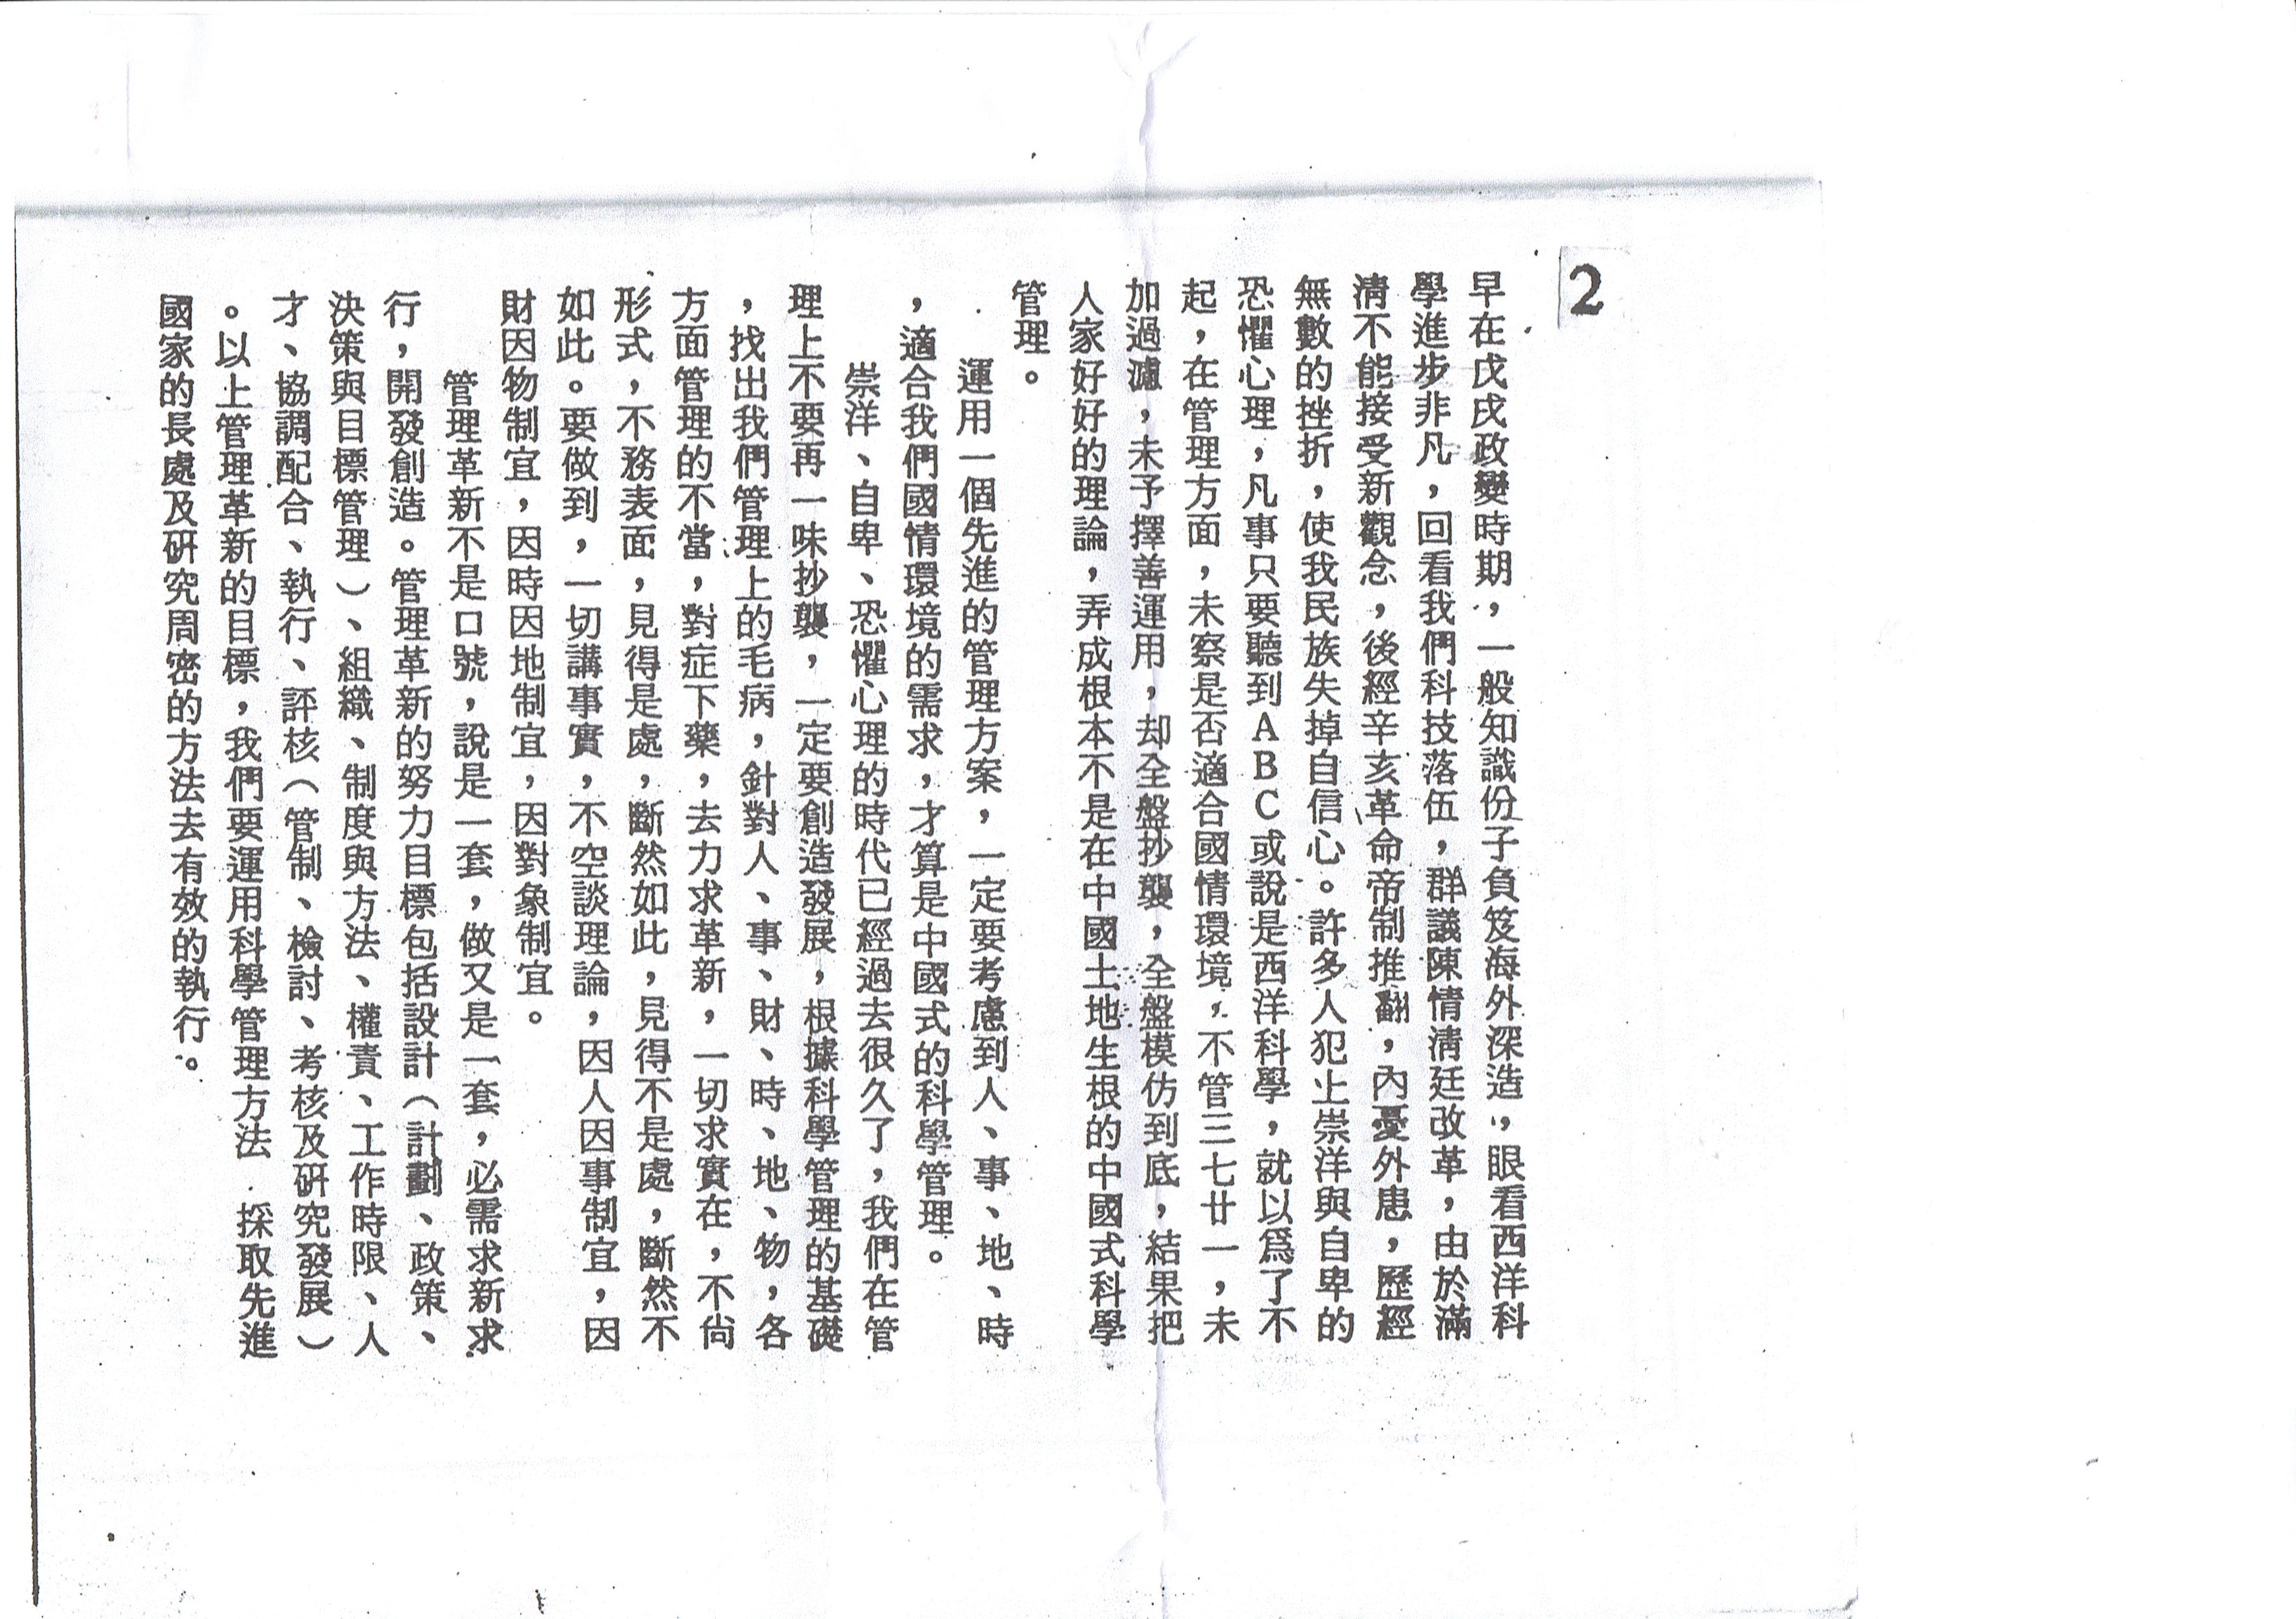 2
早在戊戌政變時期，一般知識份子負笈海外深造，眼看西洋科
學進步非凡，回看我們科技落伍，群議陳情清廷改革，由於滿
清不能接受新觀念，後經辛亥革命帝制推翻，內憂外患，歷經
無數的挫折，使我民族失掉自信心。許多人犯上崇洋與自卑的
恐懼心理，凡事只要聽到ABC或說是西洋科學，就以爲了不
起，在管理方面，未察是否適合國情環境，不管三七廿一，未
加過濾，未予擇善運用，却全盤抄襲，全盤模仿到底，結果把
人家好好的理論，弄成根本不是在中國土地生根的中國式科學
管理。
運用一個先進的管理方案，一定要考慮到人、事、地、時
，適合我們國情環境的需求，才算是中國式的科學管理。
崇洋、自卑、恐懼心理的時代已經過去很久了，我們在管
理上不要再一味抄襲，一定要創造發展，根據科學管理的基礎
，找出我們管理上的毛病，針對人、事、財、時、地、物，各
方面管理的不當，對症下藥，去力求革新，一切求實在，不尙
形式，不務表面，見得是處，斷然如此，見得不是處，斷然不
如此。要做到，一切講事實，不空談理論，因人因事制宜，因
財因物制宜，因時因地制宜，因對象制宜。
管理革新不是口號，說是一套，做又是一套，必需求新求
行，開發創造。管理革新的努力目標包括設計（計劃、政策、
決策與目標管理）、組織、制度與方法、權責、工作時限、人
才、協調配合、執行、評核（管制、檢討、考核及研究發展）
。以上管理革新的目標，我們要運用科學管理方法 採取先進
國家的長處及研究周密的方法去有效的執行。